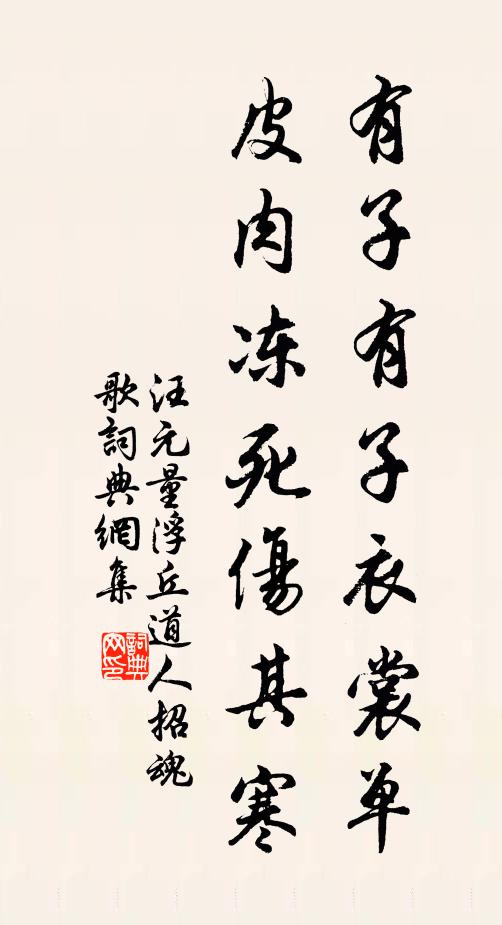 有子有子衣裳单
皮肉冻死傷其寒
汪元量浮丘道人招魂
歌詞典網集
詞典
网印